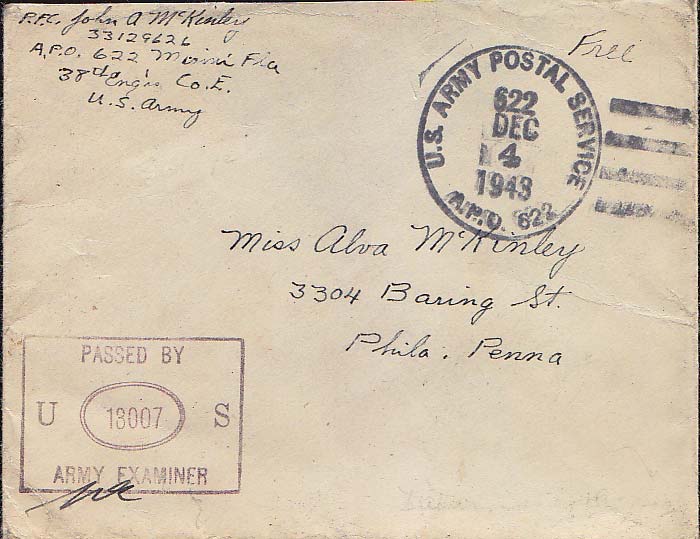 P.F.C. John A McKinley
33129626
A.P.O. 622 Miami Fla
38th Eng's Co. E.
U.S. Army
Free
U.S. ARMY POSTAL SERVICE
622
DEC
4
1943
A.P.O. 622
Miss Alva McKinley
3304 Baring St.
Phila. Penna
PASSED BY
U 13007 S
ARMY EXAMINER